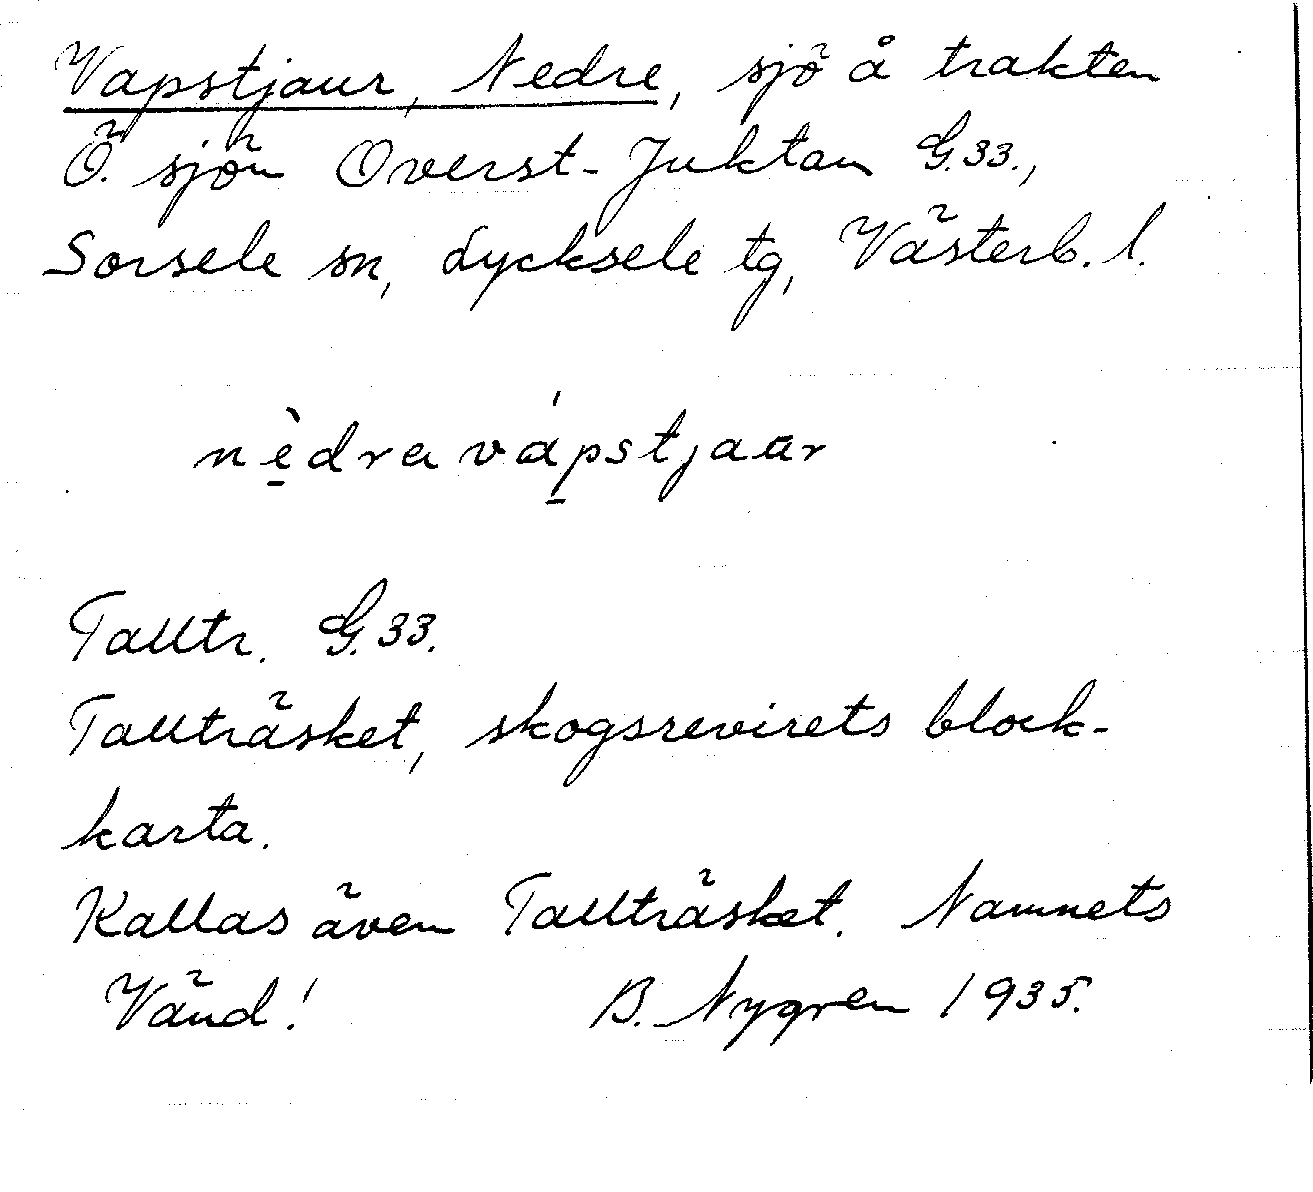 Vapstjaur, Nedre, sjö å trakten
Ö. sjön Överst-Juktan G.33.,
Sorsele sn, Lycksele tg, Västerb. l.
nẹ̀dra vápstjaur
Талltr. G.33.
Tallträsket, skogsrevirets block-
karta.
Kallas även Tallträsket. Namnets
Vänd! B. Nygren 1935.